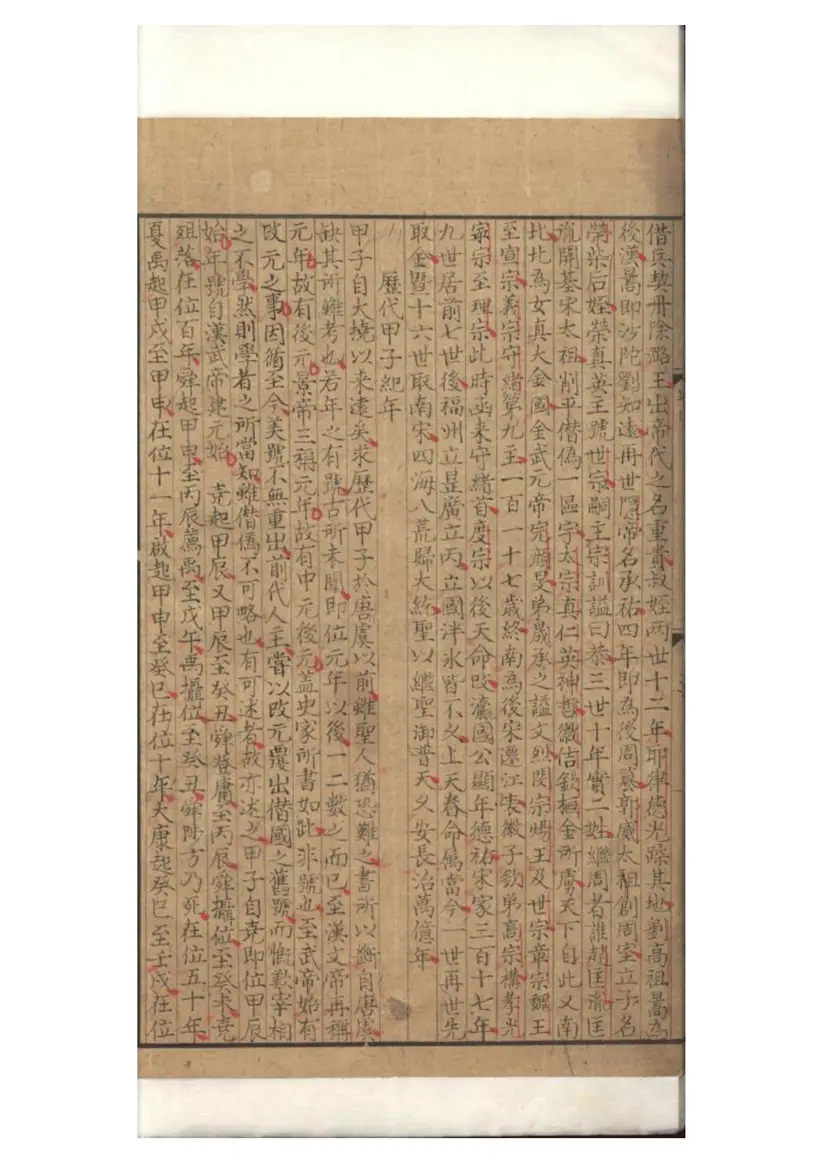 借兵契丹除潞王出帝代之名重貴叔姪兩世十二年耶律德光躁其地劉高祖暠為
後漢暠即沙陀劉知遠再世隱帝名承祐四年即為後周簒郭威太祖創周室立子名
榮柴后姪榮真英主號世宗嗣主宗訓謚曰恭三世十年實二姓繼周者誰趙匡胤匡
胤開基宋太祖削平僭偽一區宇太宗真仁英神哲徽佶欽桓金所虜天下自此乂南
北北為女真大金國金武元帝完顔旻弟晟承之謚文烈閔宗煬王及世宗章宗魏王
至宣宗義宗守緒第九主一百一十七歲終南為後宋遷江徽子欽弟高宗構孝光
寧宗至理宗此時函来守緒首度宗以後天命改瀛國公顯年德祐宋家三百十七年
九世居前七世後福州立昰廣立丙立國泮氷皆不乂上天眷命属當今一世再世先
取金暨十六世取南宋四海八荒歸大統聖以繼聖御普天乂安長治萬億年
歷代甲子紀年
甲子自大撓以来遠矣求歷代甲子於唐虞以前雖聖人猶恐難之書所以斷自唐虞
缺其所難考也若年之有號古所未聞即位元年以後一二數之而已至漢文帝再稱
元年故有後元景帝三稱元年故有中元後元盖史家所書如此非號也至武帝始有
改元之事因循至今美號不無重出前代人主嘗以改元覆出僭國之舊號而慨歎宰相
之不學然則學者之所當知雖僭偽不可略也有可述者故亦述之甲子自堯即位甲辰
始年號自漢武帝建元始 堯起甲辰又甲辰至癸丑舜登庸至丙辰舜攝位至癸未堯
殂落在位百年舜起甲申至丙辰薦禹至戊午禹攝位至癸丑舜陟方乃死在位五十年
夏禹起甲戌至甲申在位十一年啟起甲申至癸巳在位十年大康起癸巳至壬戌在位